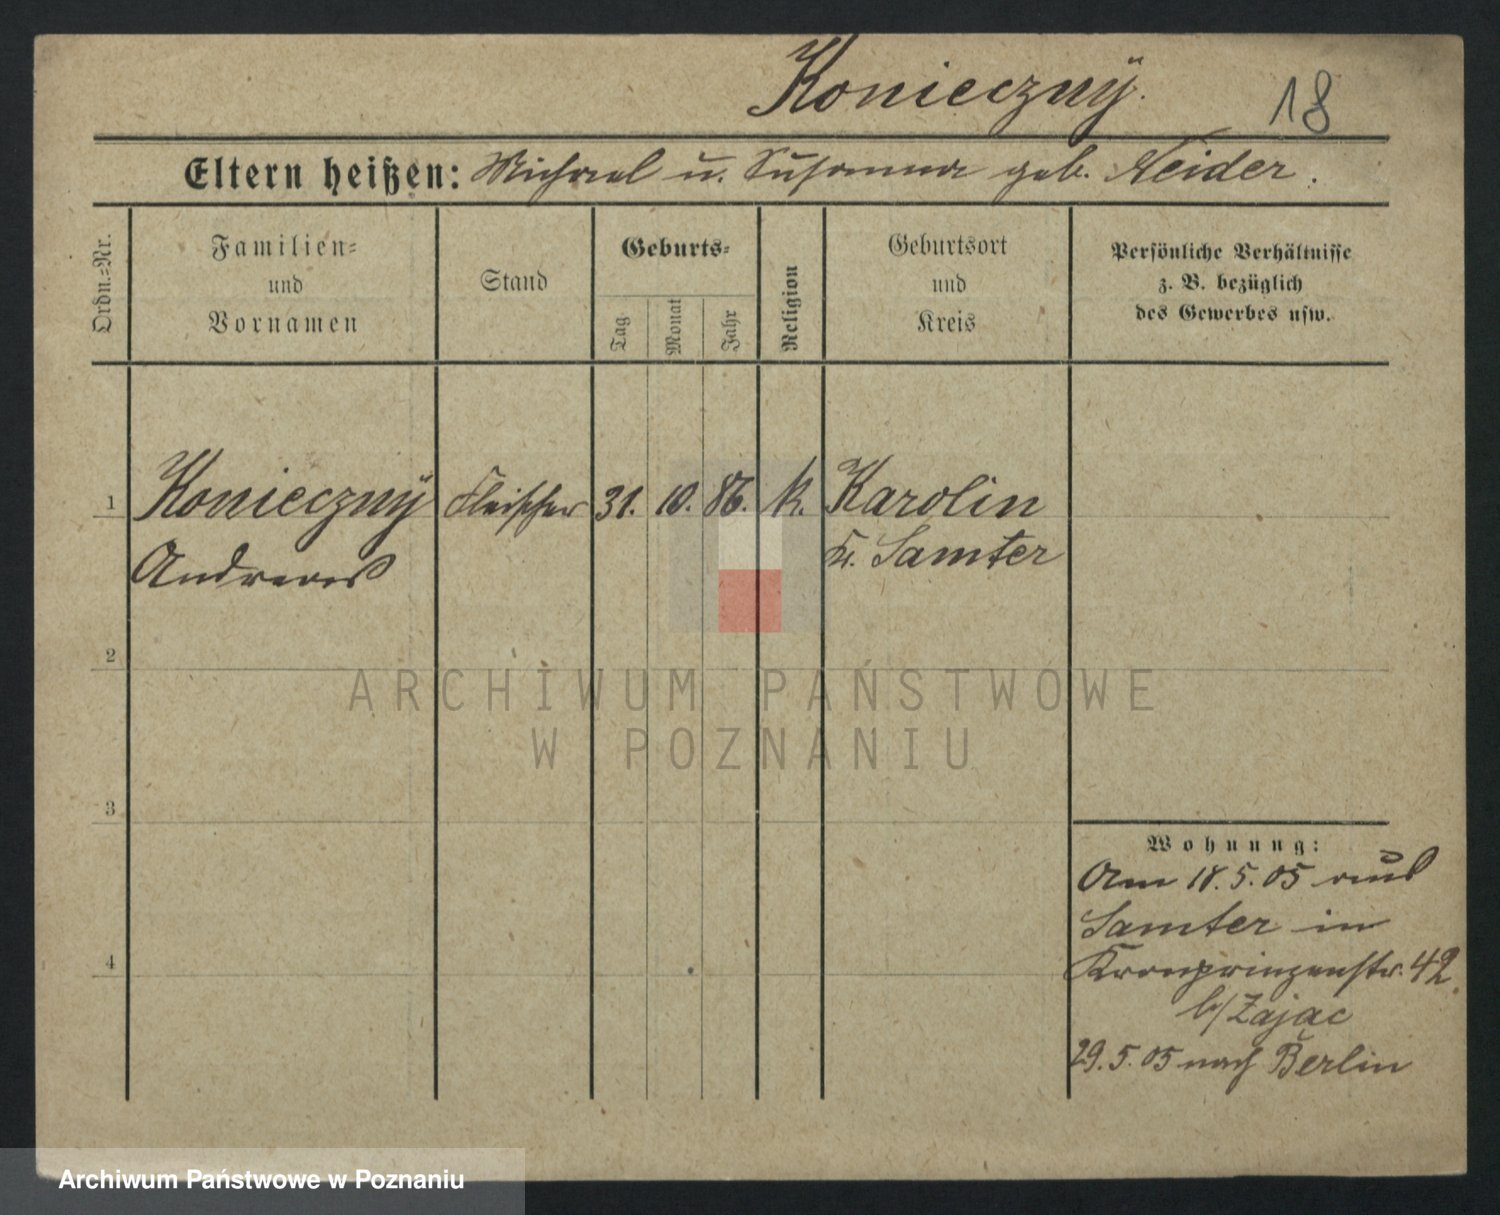 Konieczny. 18
Eltern heißen: Michael u. Susanna geb. Neider.
Ordn.=Nr.
Familien=
und
Vornamen
Stand
Geburts=
Tag
Monat
Jahr
Religion
Geburtsort
und
Kreis
Persönliche Verhältnisse
z. B. bezüglich
des Gewerbes usw.
1 Konieczny Fleischer 31. 10. 86. k. Karolin
Andreas Kr. Samter
2
3
4
Wohnung:
Am 18.5.05 aus
Samter in
Kronprinzenstr. 42.
b/Zając
29.5.05 nach Berlin
ARCHIWUM PAŃSTWOWE
W POZNANIU
Archiwum Państwowe w Poznaniu